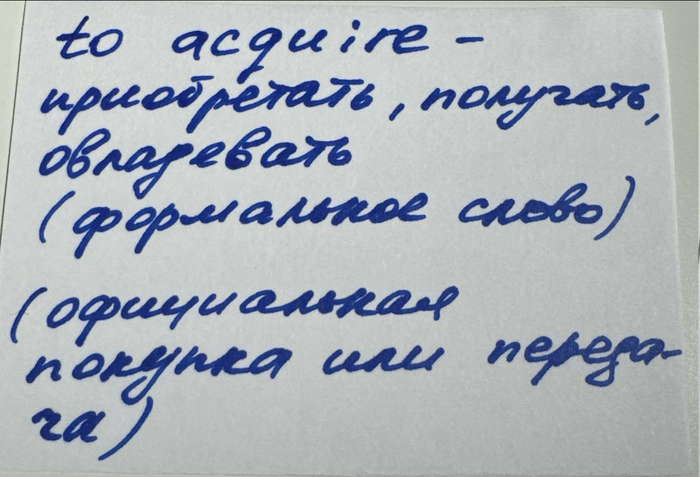 to acquire -
приобретать, получать,
овладевать
(формальное слово)
(официальная
покупка или переда-
ча)